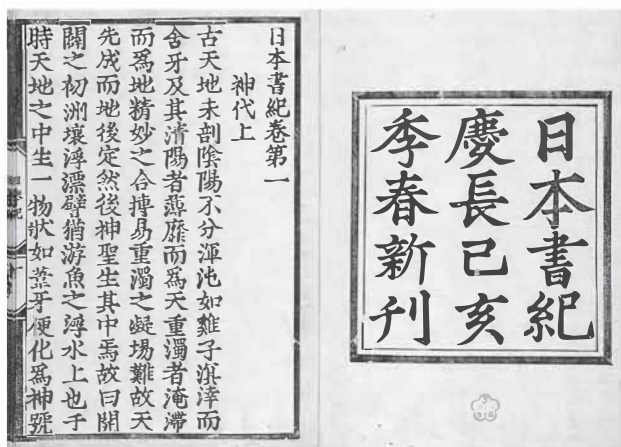 日本書紀
慶長己亥
季春新刊
日本書紀卷第一
神代上
古天地未剖陰陽不分渾沌如雞子溟涬而
含牙及其清陽者薄靡而爲天重濁者淹滯
而爲地精妙之合搏易重濁之凝場難故天
先成而地後定然後神聖生其中焉故曰開
闢之初洲壤浮漂譬猶游魚之浮水上也于
時天地之中生一物狀如葦牙便化爲神號